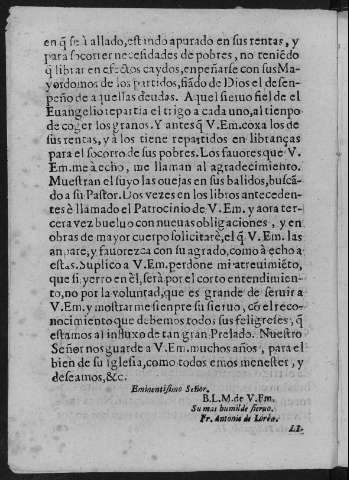 en q̃ se à allado, estando apurado en sus rentas, y
para socorrer necesidades de pobres, no teniẽdo
q̃ librar en efectos caydos, enpeñarse con sus Ma-
yordomos de los partidos, fiãdo de Dios el desen-
peño de aquellas deudas. Aquel sieruo fiel de el
Euangelio repartia el trigo a cada uno, al tienpo
de coger los granos. Y antes q̃ V. Em. coxa los de
sus rentas, y à los tiene repartidos en libranças
para el socorro de sus pobres. Los fauores que V.
Em. me à echo, me llaman al agradecimiento.
Muestran el suyo las ouejas en sus balidos, buscã-
do a su Pastor. Dos vezes en los libros anteceden-
tes è llamado el Patrocinio de V. Em. y aora ter-
cera vez bueluo con nueuas obligaciones, y en
obras de mayor cuerpo solicitarè, el q̃ V. Em. las
anpare, y fauorezca con su agrado, como à echo a
estas. Suplico a V. Em. perdone mi atreuimiẽto,
que si yerro en èl, serà por el corto entendimien-
to, no por la voluntad, que es grande de seruir a
V. Em. y mostrarme sienpre su sieruo, cõ el reco-
nocimiento que debemos todos sus feligreses, q̃
estamos al influxo de tan gran Prelado. Nuestro
Señor nos guarde a V. Em. muchos años, para el
bien de su iglesia, como todos emos menester, y
deseamos, &c.
Eminentisimo Señor.
B. L. M. de V. Em.
Su mas humilde sieruo.
Fr. Antonio de Lorẽa.
LI-